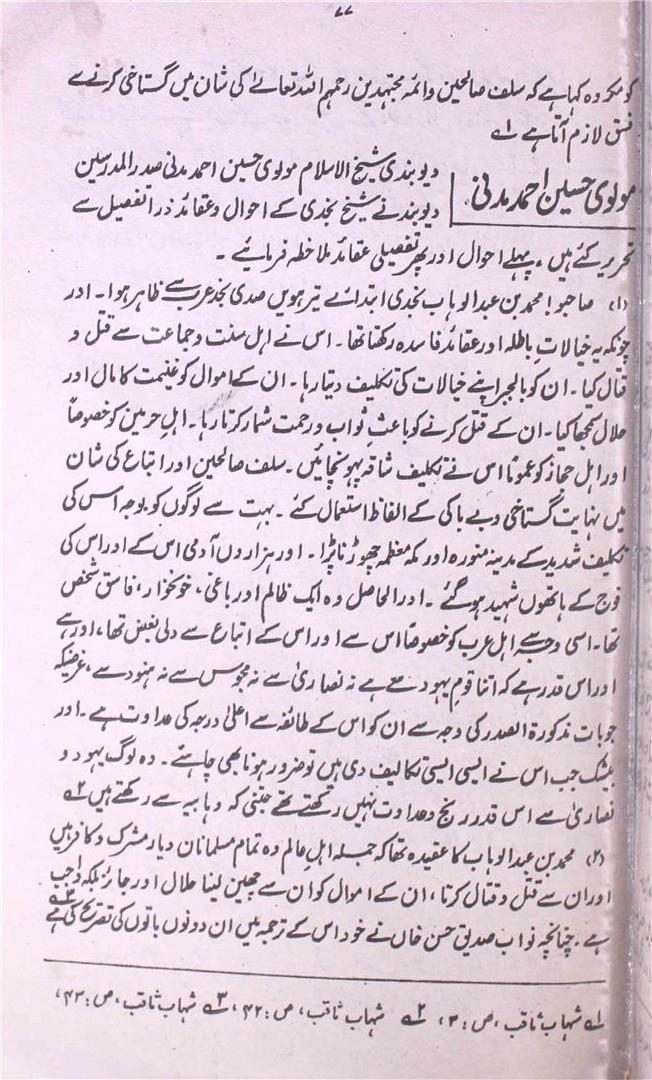 ۷۷
کو مکروہ کہا ہے کہ سلف صالحین وائمہ مجتہدین رحمہم اللہ تعالےٰ کی شان میں گستاخی کرنے سے
فسق لازم آتا ہے ۱ے
مولوی حسین احمد مدنی
دیوبندی شیخ الاسلام مولوی حسین احمد مدنی صدر المدرسین
دیوبند نے شیخ نجدی کے احوال و عقائد ذرا تفصیل سے
تحریر کئے ہیں ۔ پہلے احوال اور پھر تفصیلی عقائد ملاحظہ فرمائیے ۔
(۱) صاحبو! محمد بن عبدالوہاب نجدی ابتدائے تیرھویں صدی نجد عرب سے ظاہر ہوا ۔ اور
چونکہ یہ خیالات باطلہ اور عقائد فاسدہ رکھتا تھا ۔ اس نے اہل سنت وجماعت سے قتل و
قتال کیا ۔ ان کو بالجبر اپنے خیالات کی تکلیف دیتا رہا ۔ ان کے اموال کو غنیمت کا مال اور
حلال سمجھا کیا ۔ ان کے قتل کرنے کو باعثِ ثواب ورحمت شمار کرتا رہا ۔ اہلِ حرمین کو خصوصاً
اور اہل حجاز کو عموماً اس نے تکلیف شاقہ پہونچائیں ۔ سلف صالحین اور اتباع کی شان
میں نہایت گستاخی وبے باکی کے الفاظ استعمال کئے ۔ بہت سے لوگوں کو بوجہ اس کی
تکلیف شدید کے مدینہ منورہ اور مکہ معظمہ چھوڑنا پڑا ۔ اور ہزاروں آدمی اس کے اور اس کی
فوج کے ہاتھوں شہید ہو گئے ۔ اور الحاصل وہ ایک ظالم اور باغی، خونخوار، فاسق شخص
تھا ۔ اسی وجہ سے اہل عرب کو خصوصاً اس سے اور اس کے اتباع سے دلی بغض تھا، اور ہے
اور اس قدر ہے کہ اتنا قوم یہود سے ہے نہ نصاریٰ سے نہ مجوس سے نہ ہنود سے، غرضیکہ
وجوہات مذکورۃ الصدر کی وجہ سے ان کو اس کے طائفہ سے اعلیٰ درجہ کی عداوت ہے ۔ اور
بیشک جب اس نے ایسی ایسی تکالیف دی ہیں تو ضرور ہونا بھی چاہئے ۔ وہ لوگ یہود و
نصاریٰ سے اس قدر رنج وعداوت نہیں رکھتے تھے جتنی کہ وہابیہ سے رکھتے ہیں ۲ے
(۲) محمد بن عبدالوہاب کا عقیدہ تھا کہ جملہ اہلِ عالم وہ تمام مسلمانان دیار مشرک وکافر ہیں
اور ان سے قتل وقتال کرنا، ان کے اموال کو ان سے چھین لینا حلال اور جائز بلکہ واجب
ہے ۔ چنانچہ نواب صدیق حسن خاں نے خود اس کے ترجمہ میں ان دونوں باتوں کی تصریح کی ہے ۳ے
۱ے شہاب ثاقب، ص: ۳، ۲ے شہاب ثاقب، ص: ۴۲، ۳ے شہاب ثاقب، ص: ۴۳،